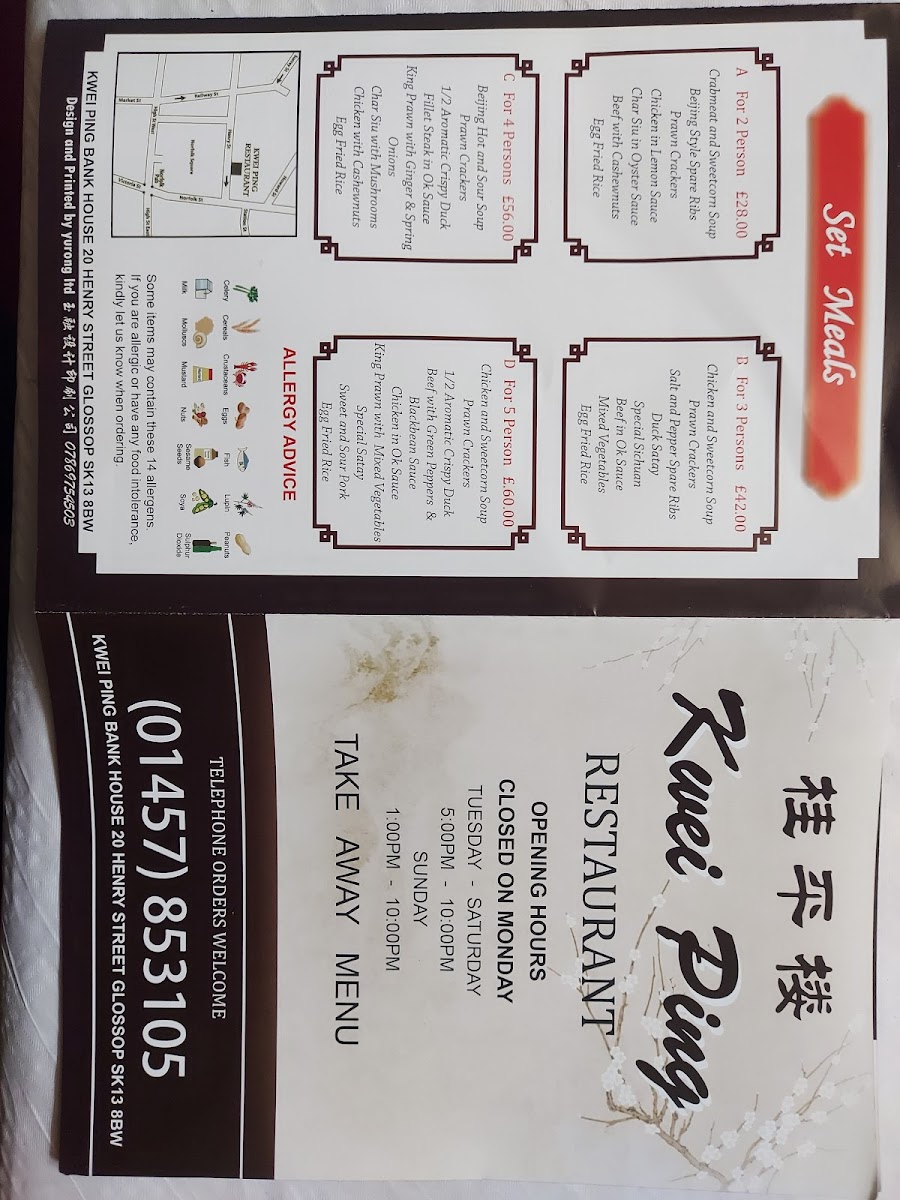 Set Meals
A For 2 Person £28.00
Crabmeat and Sweetcorn Soup
Beijing Style Spare Ribs
Prawn Crackers
Chicken in Lemon Sauce
Char Siu in Oyster Sauce
Beef with Cashewnuts
Egg Fried Rice
B For 3 Persons £42.00
Chicken and Sweetcorn Soup
Prawn Crackers
Salt and Pepper Spare Ribs
Duck Satay
Special Sichuan
Beef in Ok Sauce
Mixed Vegetables
Egg Fried Rice
C For 4 Persons £56.00
Beijing Hot and Sour Soup
Prawn Crackers
1/2 Aromatic Crispy Duck
Fillet Steak in Ok Sauce
King Prawn with Ginger & Spring
Onions
Char Siu with Mushrooms
Chicken with Cashewnuts
Egg Fried Rice
D For 5 Person £.60.00
Chicken and Sweetcorn Soup
Prawn Crackers
1/2 Aromatic Crispy Duck
Beef with Green Peppers &
Blackbean Sauce
Chicken in Ok Sauce
King Prawn with Mixed Vegetables
Special Satay
Sweet and Sour Pork
Egg Fried Rice
Railway St
Market St
High St West
Henry St
KWEI PING
RESTAURANT
Norfolk Square
Norfolk St
Station St
Victoria St
High St East
ALLERGY ADVICE
Celery
Cereals
Crustaceans
Eggs
Fish
Lupin
Peanuts
Milk
Molluscs
Mustard
Nuts
Sesame
Seeds
Soya
Sulphur
Dioxide
Some items may contain these 14 allergens.
If you are allergic or have any food intolerance,
kindly let us know when ordering
KWEI PING BANK HOUSE 20 HENRY STREET GLOSSOP SK13 8BW
Design and Printed by yurong ltd 玉融设计印刷公司 07869754503
桂平楼
Kwei Ping
RESTAURANT
OPENING HOURS
CLOSED ON MONDAY
TUESDAY - SATURDAY
5:00PM - 10:00PM
SUNDAY
1:00PM - 10:00PM
TAKE AWAY MENU
TELEPHONE ORDERS WELCOME
(01457) 853105
KWEI PING BANK HOUSE 20 HENRY STREET GLOSSOP SK13 8BW